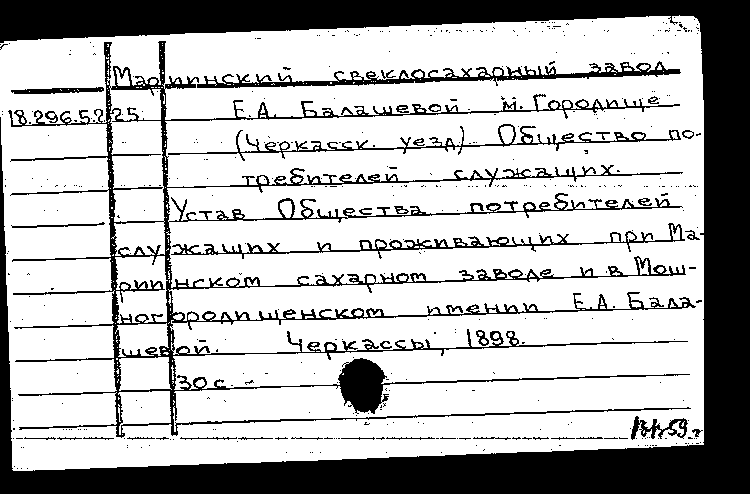 Мариинский свеклосахарный завод
18.296.5.225 Е.А. Балашевой м. Городище
(Черкасск. уезд) Общество по-
требителей служащих.
Устав Общества потребителей
служащих и проживающих при Ма-
риинском сахарном заводе и в Мош-
ногородищенском имении Е.А. Бала-
шевой. Черкассы, 1898.
30 с -